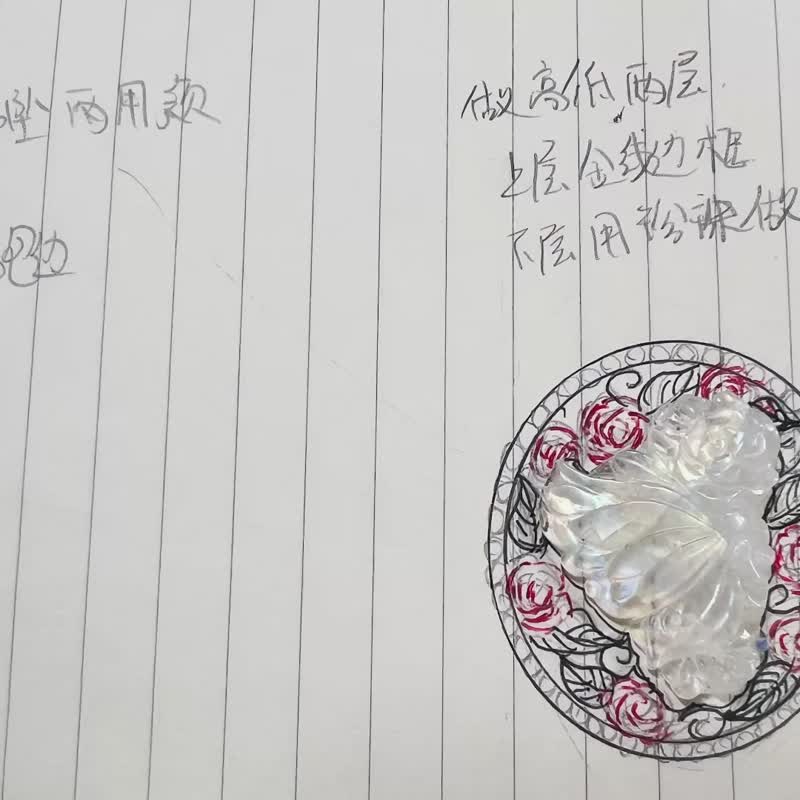 坠两用款
包边
做高低两层.
上层金线边框
下层用珍珠做